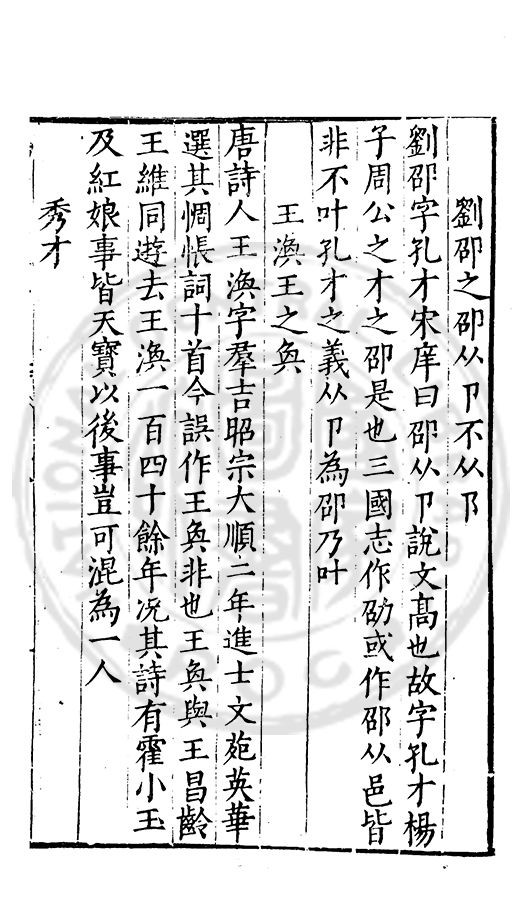 劉卲之卲从卩不从阝
劉卲字孔才宋庠曰卲从卩說文高也故字孔才楊
子周公之才之卲是也三國志作劭或作邵从邑皆
非不叶孔才之義从卩為卲乃叶
王渙王之奐
唐詩人王渙字羣吉昭宗大順二年進士文苑英華
選其惆悵詞十首今誤作王奐非也王奐與王昌齡
王維同遊去王渙一百四十餘年况其詩有霍小玉
及紅娘事皆天寶以後事豈可混為一人
秀才